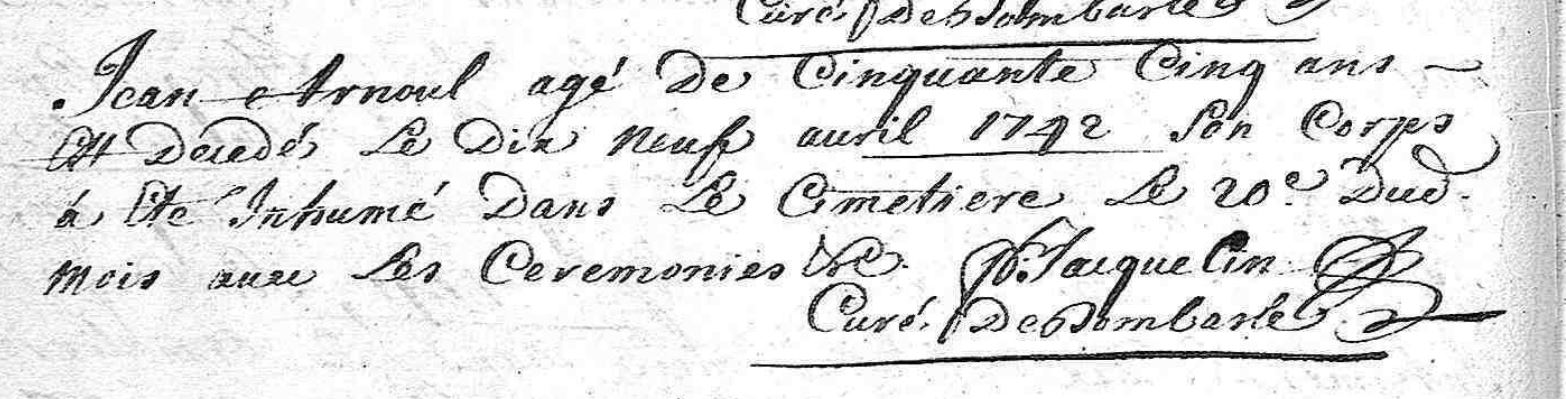 Curé de Dombasle
Jean Arnoul agé De Cinquante Cinq ans
Est Decedé Le Dix neuf auril 1742 Son Corps
á Eté Inhumé Dans Le Cimetiere Le 20e Dud.
mois auec Les Ceremonies &c. Jacquelin
Curé de Dombasle